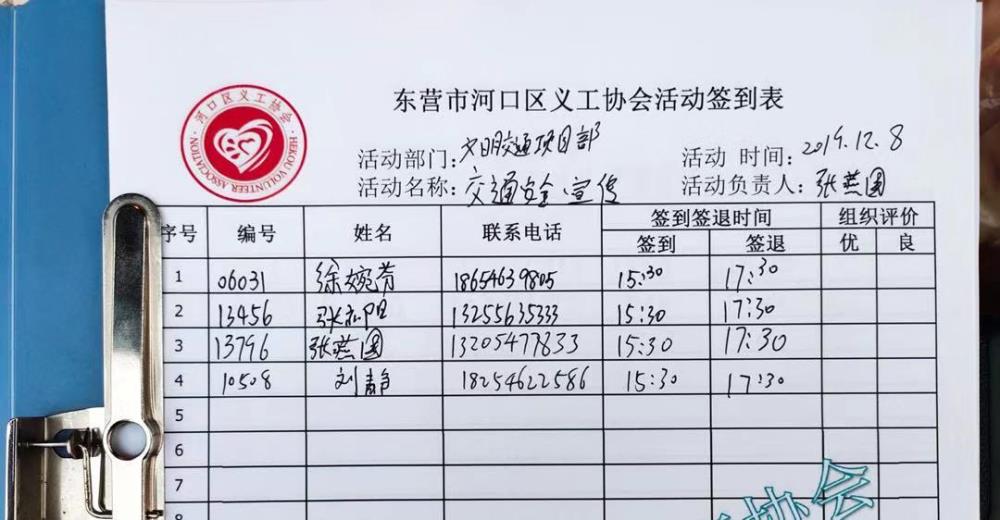 东营市河口区义工协会活动签到表
河口区义工协会
HEKOU VOLUNTEER ASSOCIATION
活动部门：文明交通项目部 活动 时间：2019.12.8
活动名称：交通安全宣传 活动负责人：张燕国
序号 编号 姓名 联系电话 签到签退时间 组织评价
签到 签退 优 良
1 06031 徐婉芳 18654639805 15:30 17:30
2 13456 张亦阳 13255635333 15:30 17:30
3 13796 张燕国 13205477833 15:30 17:30
4 10508 刘静 18254622586 15:30 17:30
5
6
7
8
协会